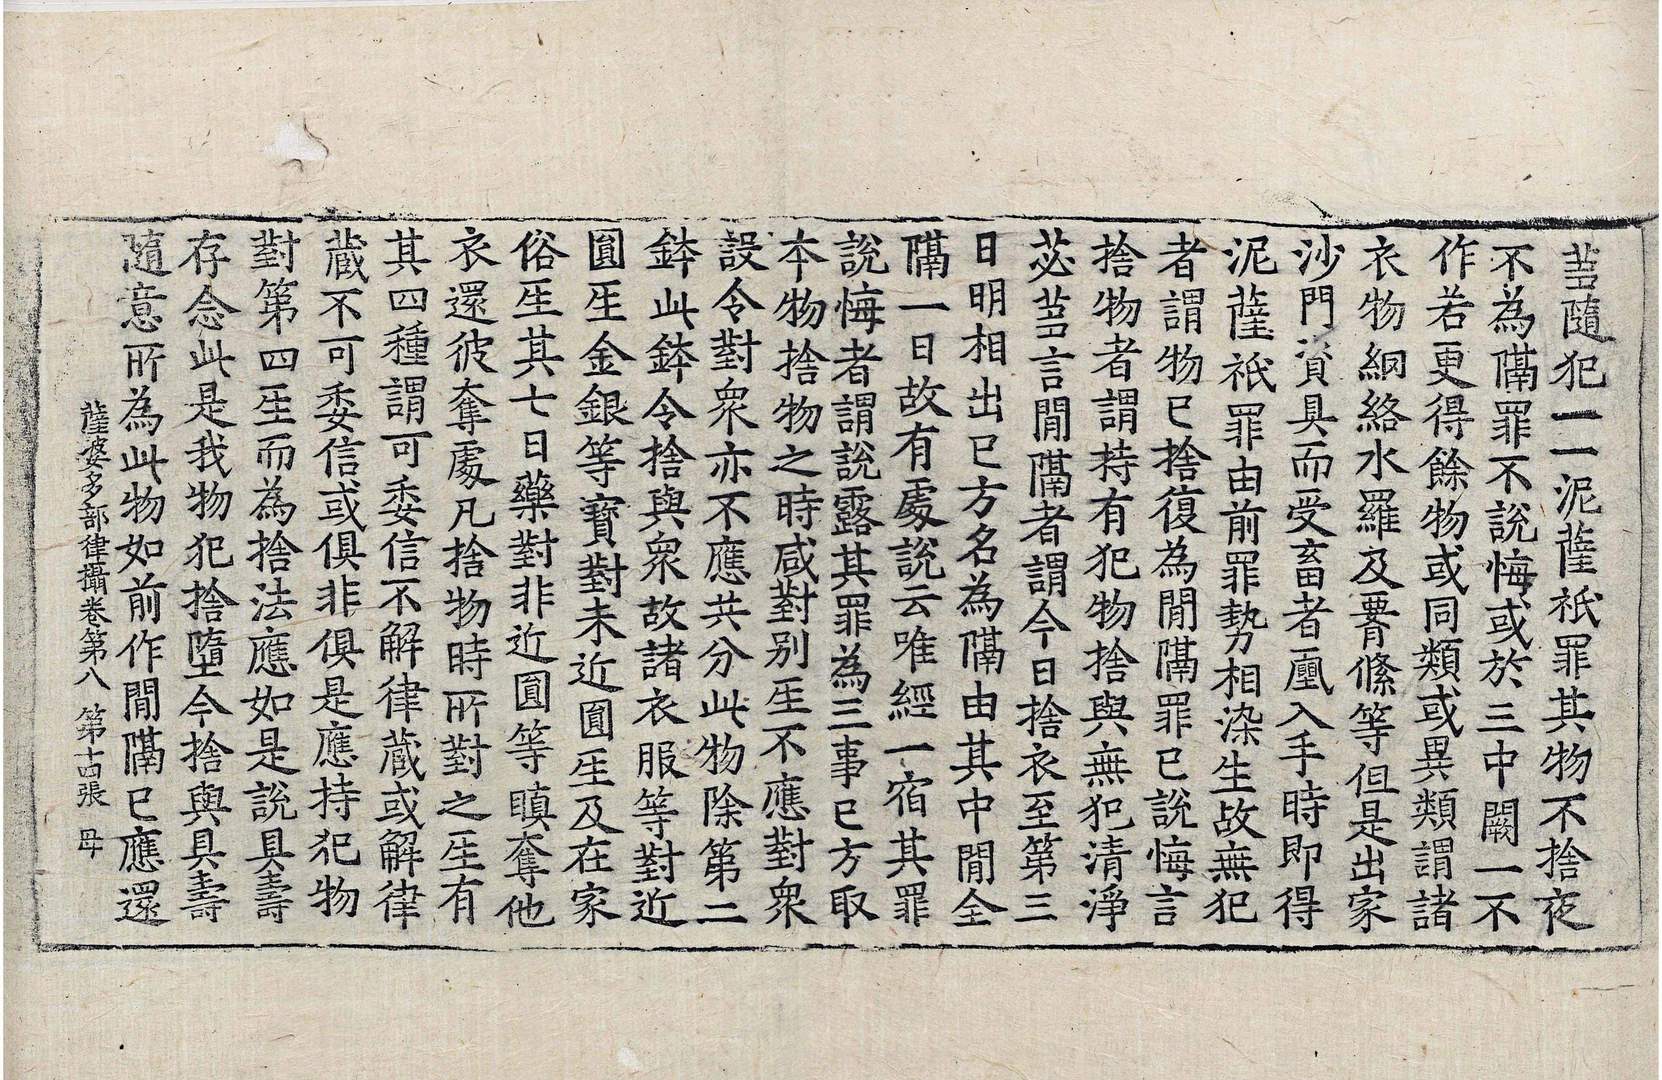 苾隨犯一一泥薩祇罪其物不捨夜
不為隔罪不說悔或於三中闕一不
作若更得餘物或同類或異類謂諸
衣物網絡水羅及要䏶絛等但是出家
沙門資具而受畜者凰入手時即得
泥薩祇罪由前罪勢相染生故無犯
者謂物已捨復為閒隔罪已說悔言
捨物者謂持有犯物捨與無犯清淨
苾芻言閒隔者謂今日捨衣至第三
日明相出已方名為隔由其中閒全
隔一日故有處說云唯經一宿其罪
說悔者謂說露其罪為三事已方取
本物捨物之時咸對別𤯔不應對衆
設令對衆亦不應共分此物除第二
鉢此鉢令捨與衆故諸衣服等對近
圓𤯔金銀等寶對未近圓𤯔及在家
俗𤯔其七日藥對非近圓等瞋奪他
衣還彼奪處凡捨物時所對之𤯔有
其四種謂可委信不解律藏或解律
藏不可委信或俱非俱是應持犯物
對第四𤯔而為捨法應如是說具壽
存念此是我物犯捨墮今捨與具壽
隨意所為此物如前作閒隔已應還
薩婆多部律攝卷第八 第十四張 母